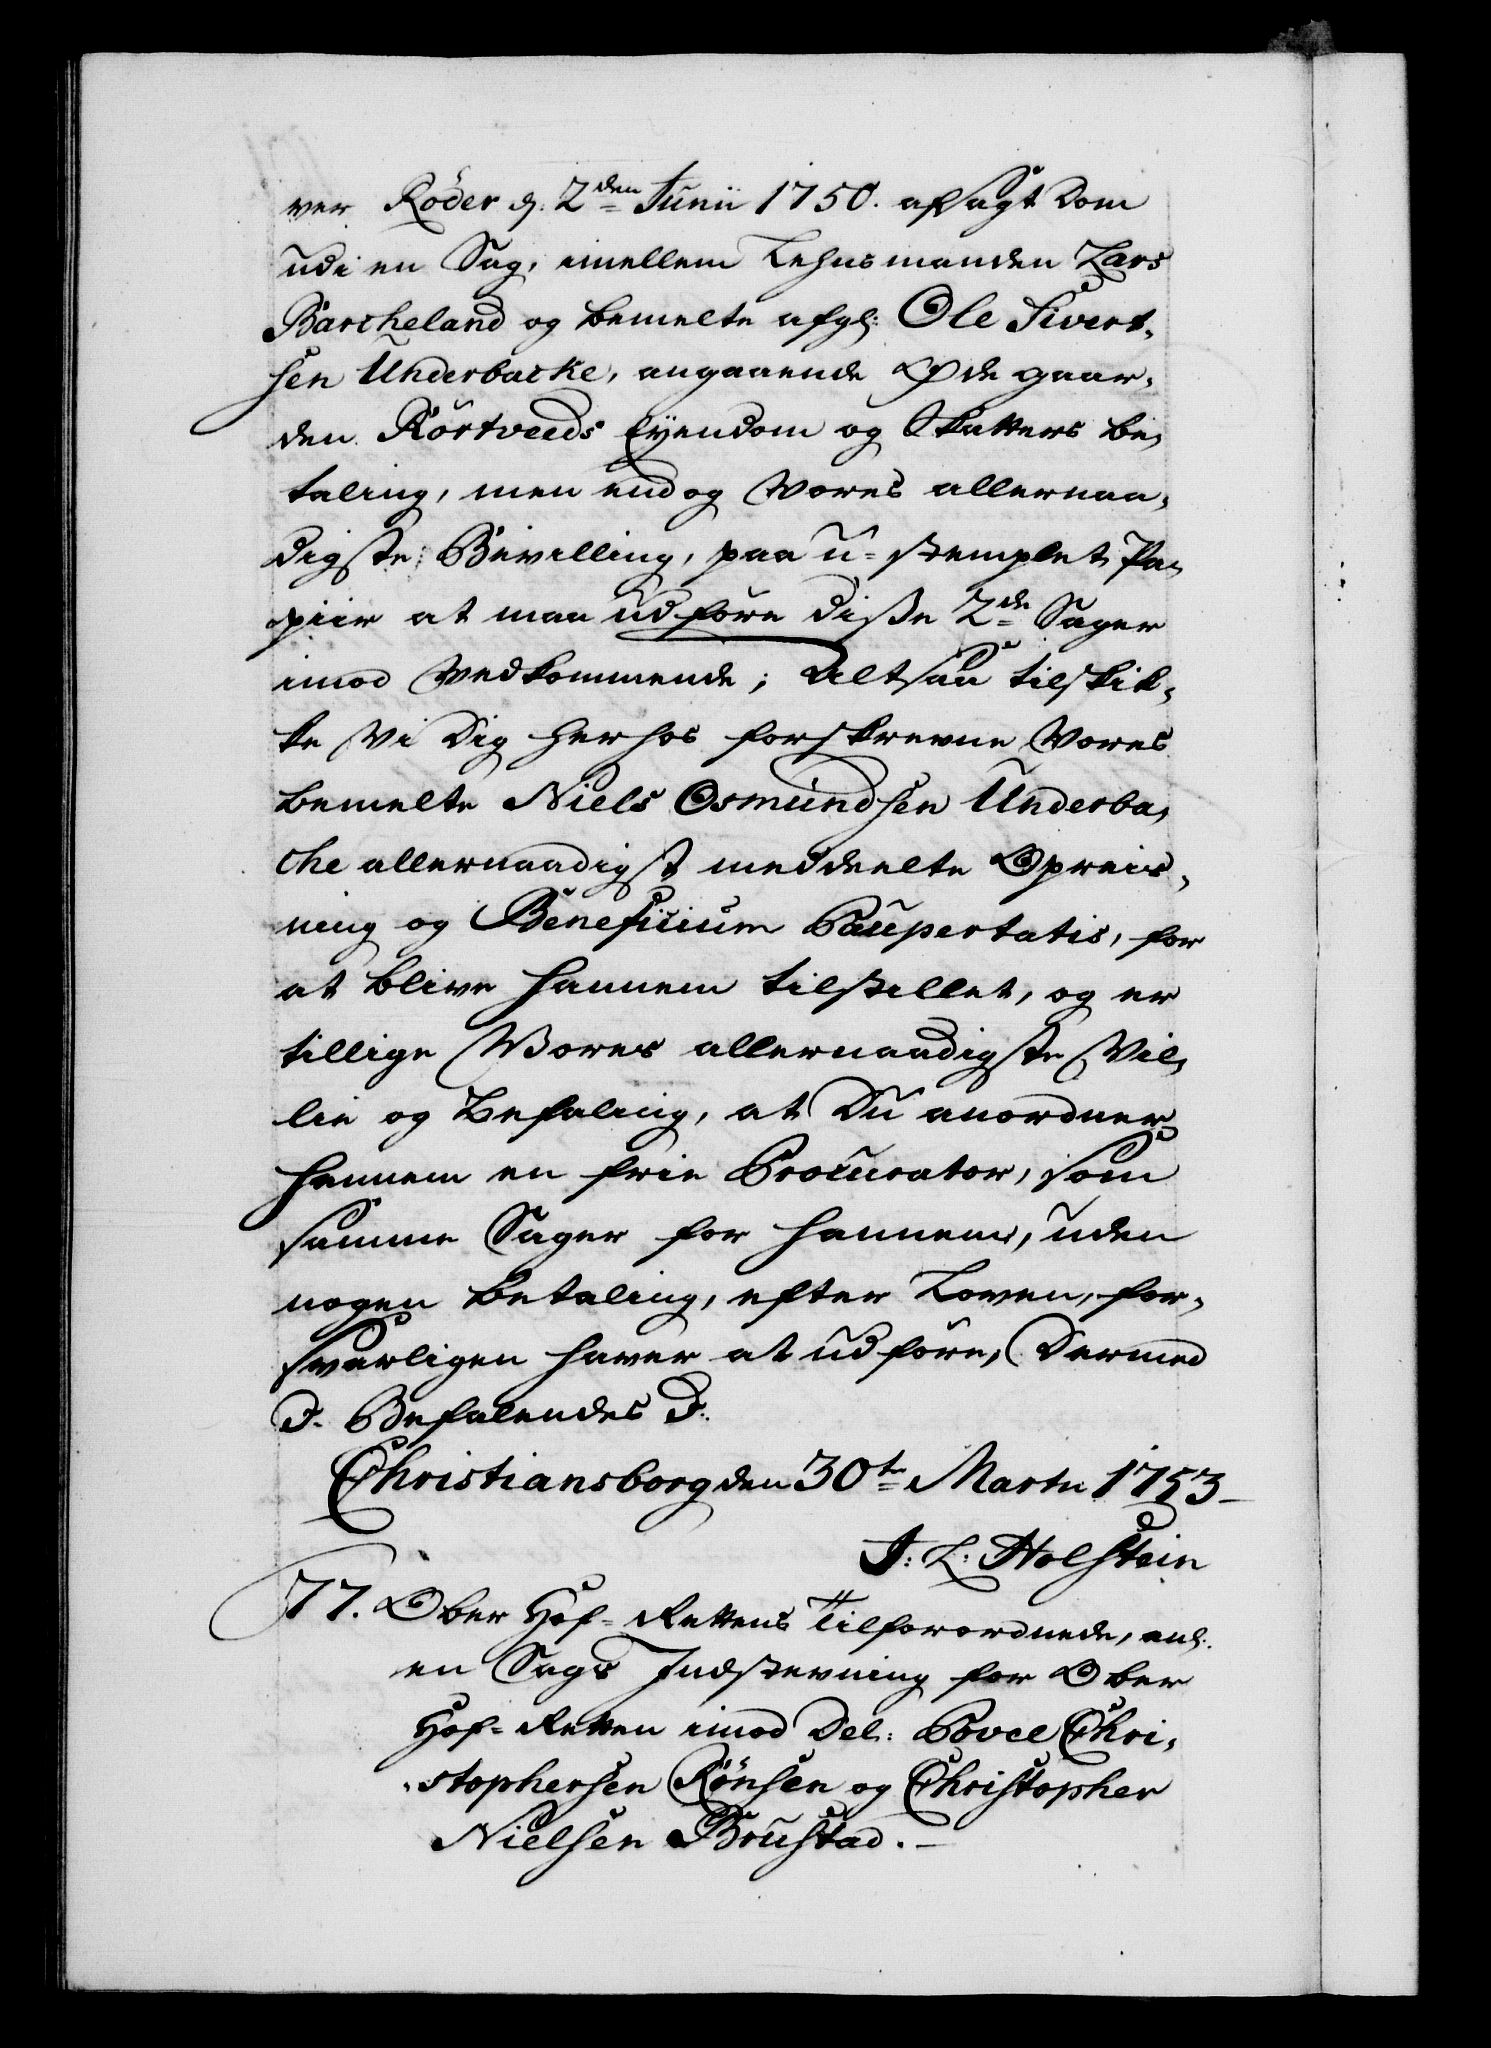 ver Röder d: 2den Junii 1750. afsagt Dom
udi en Sag, imellem Lehnsmanden Lars
Barcheland og bemelte afgl: Ole Sivert-
sen Underbacke, angaaende Øde gaar-
den Körtveeds Eyendom og Skatters be-
taling, men endog Vores allernaa-
digste Bevilling, paa u-stemplet Pa-
piir at maa udføre disse 2de Sager
imod Vedkommende; Altsaa tilskik-
ke Vi Dig herhos forskrevne Vores
bemelte Niels Osmundsen Underba-
che allernaadigst meddeelte Opreis-
ning og Beneficium Paupertatis, for
at blive hannem tilstillet, og er
tillige Vores allernaadigste Vil-
lie og Befaling, at Du anordner
hannem en frie Procurator, som
samme Sager for hannem, uden
nogen betaling, efter Loven, for-
svarligen haver at udføre, Dermed
p. Befalendes p:
Christiansborg den 30te Martii 1753
J: L: Holstein
77. Ober Hof-Rettens Tilforordnede, anl:
en Sags Indstevning for Ober
Hof-Retten imod Del: Povel Chri-
stophersen Rönsen og Christopher
Nielsen Brustad.